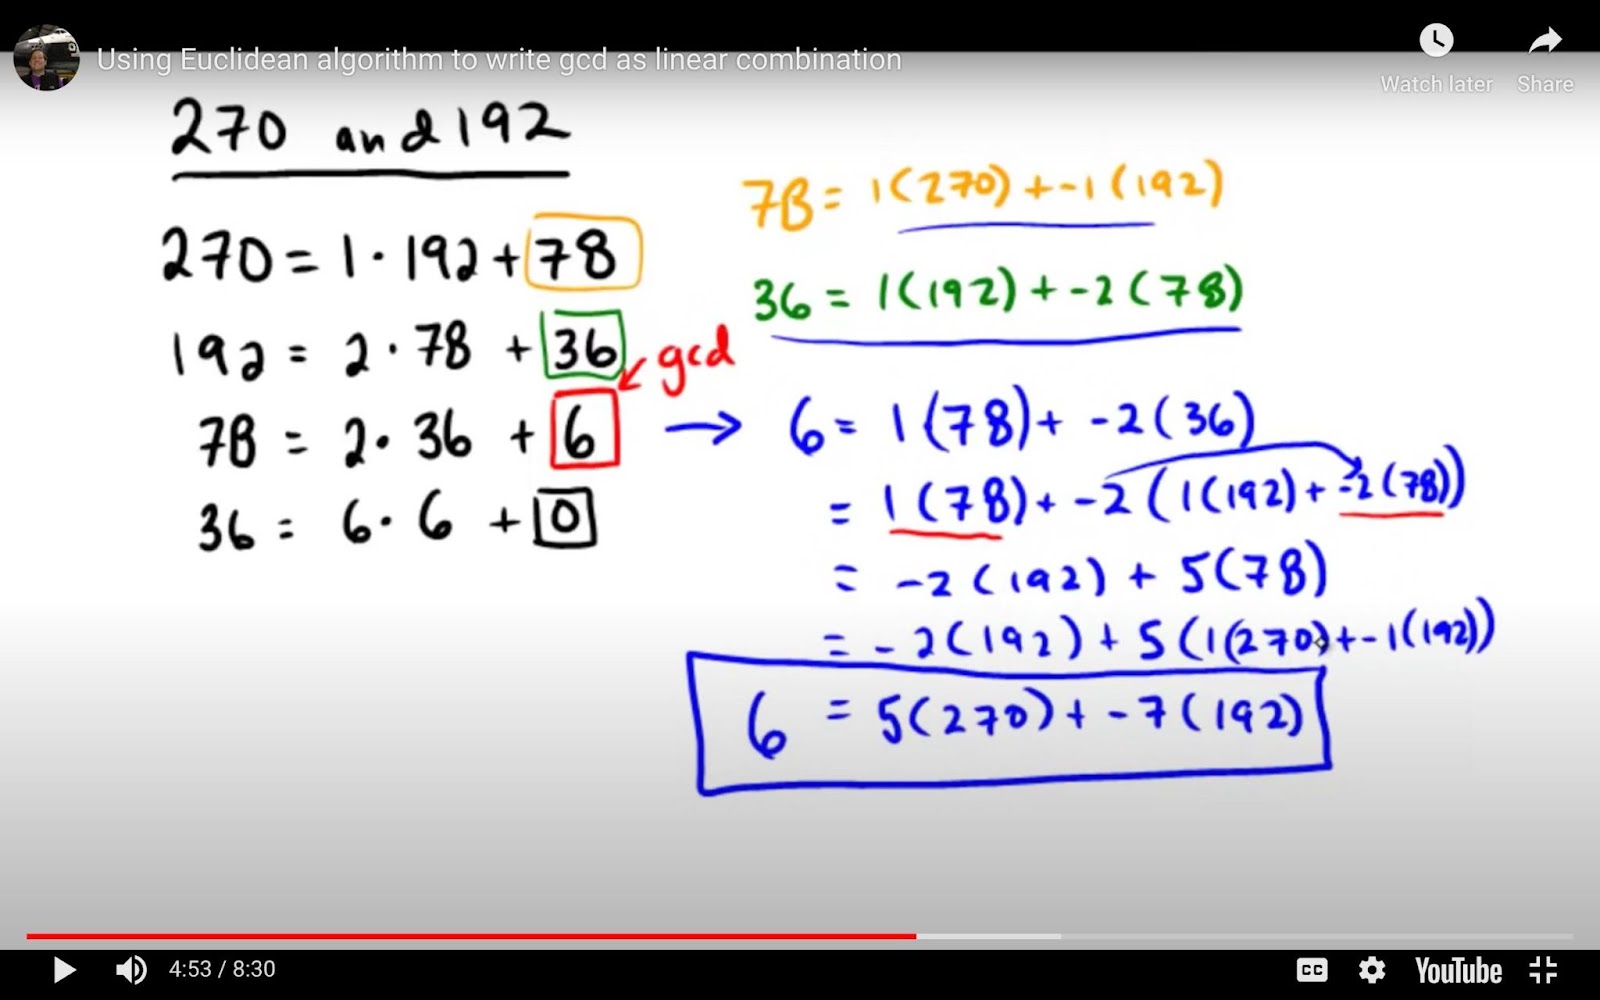 Using Euclidean algorithm to write gcd as linear combination
Watch later Share
270 and 192
270 = 1 · 192 + 78
192 = 2 · 78 + 36
gcd
78 = 2 · 36 + 6
36 = 6 · 6 + 0
78 = 1(270) + -1(192)
36 = 1(192) + -2(78)
→ 6 = 1(78) + -2(36)
= 1(78) + -2(1(192) + -2(78))
= -2(192) + 5(78)
= -2(192) + 5(1(270) + -1(192))
6 = 5(270) + -7(192)
4:53 / 8:30
CC YouTube